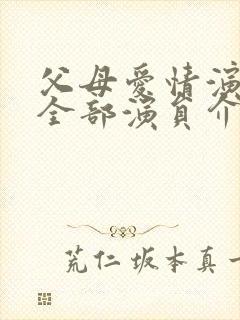 父母爱情演
全部演员介
荒仁 坂本真一